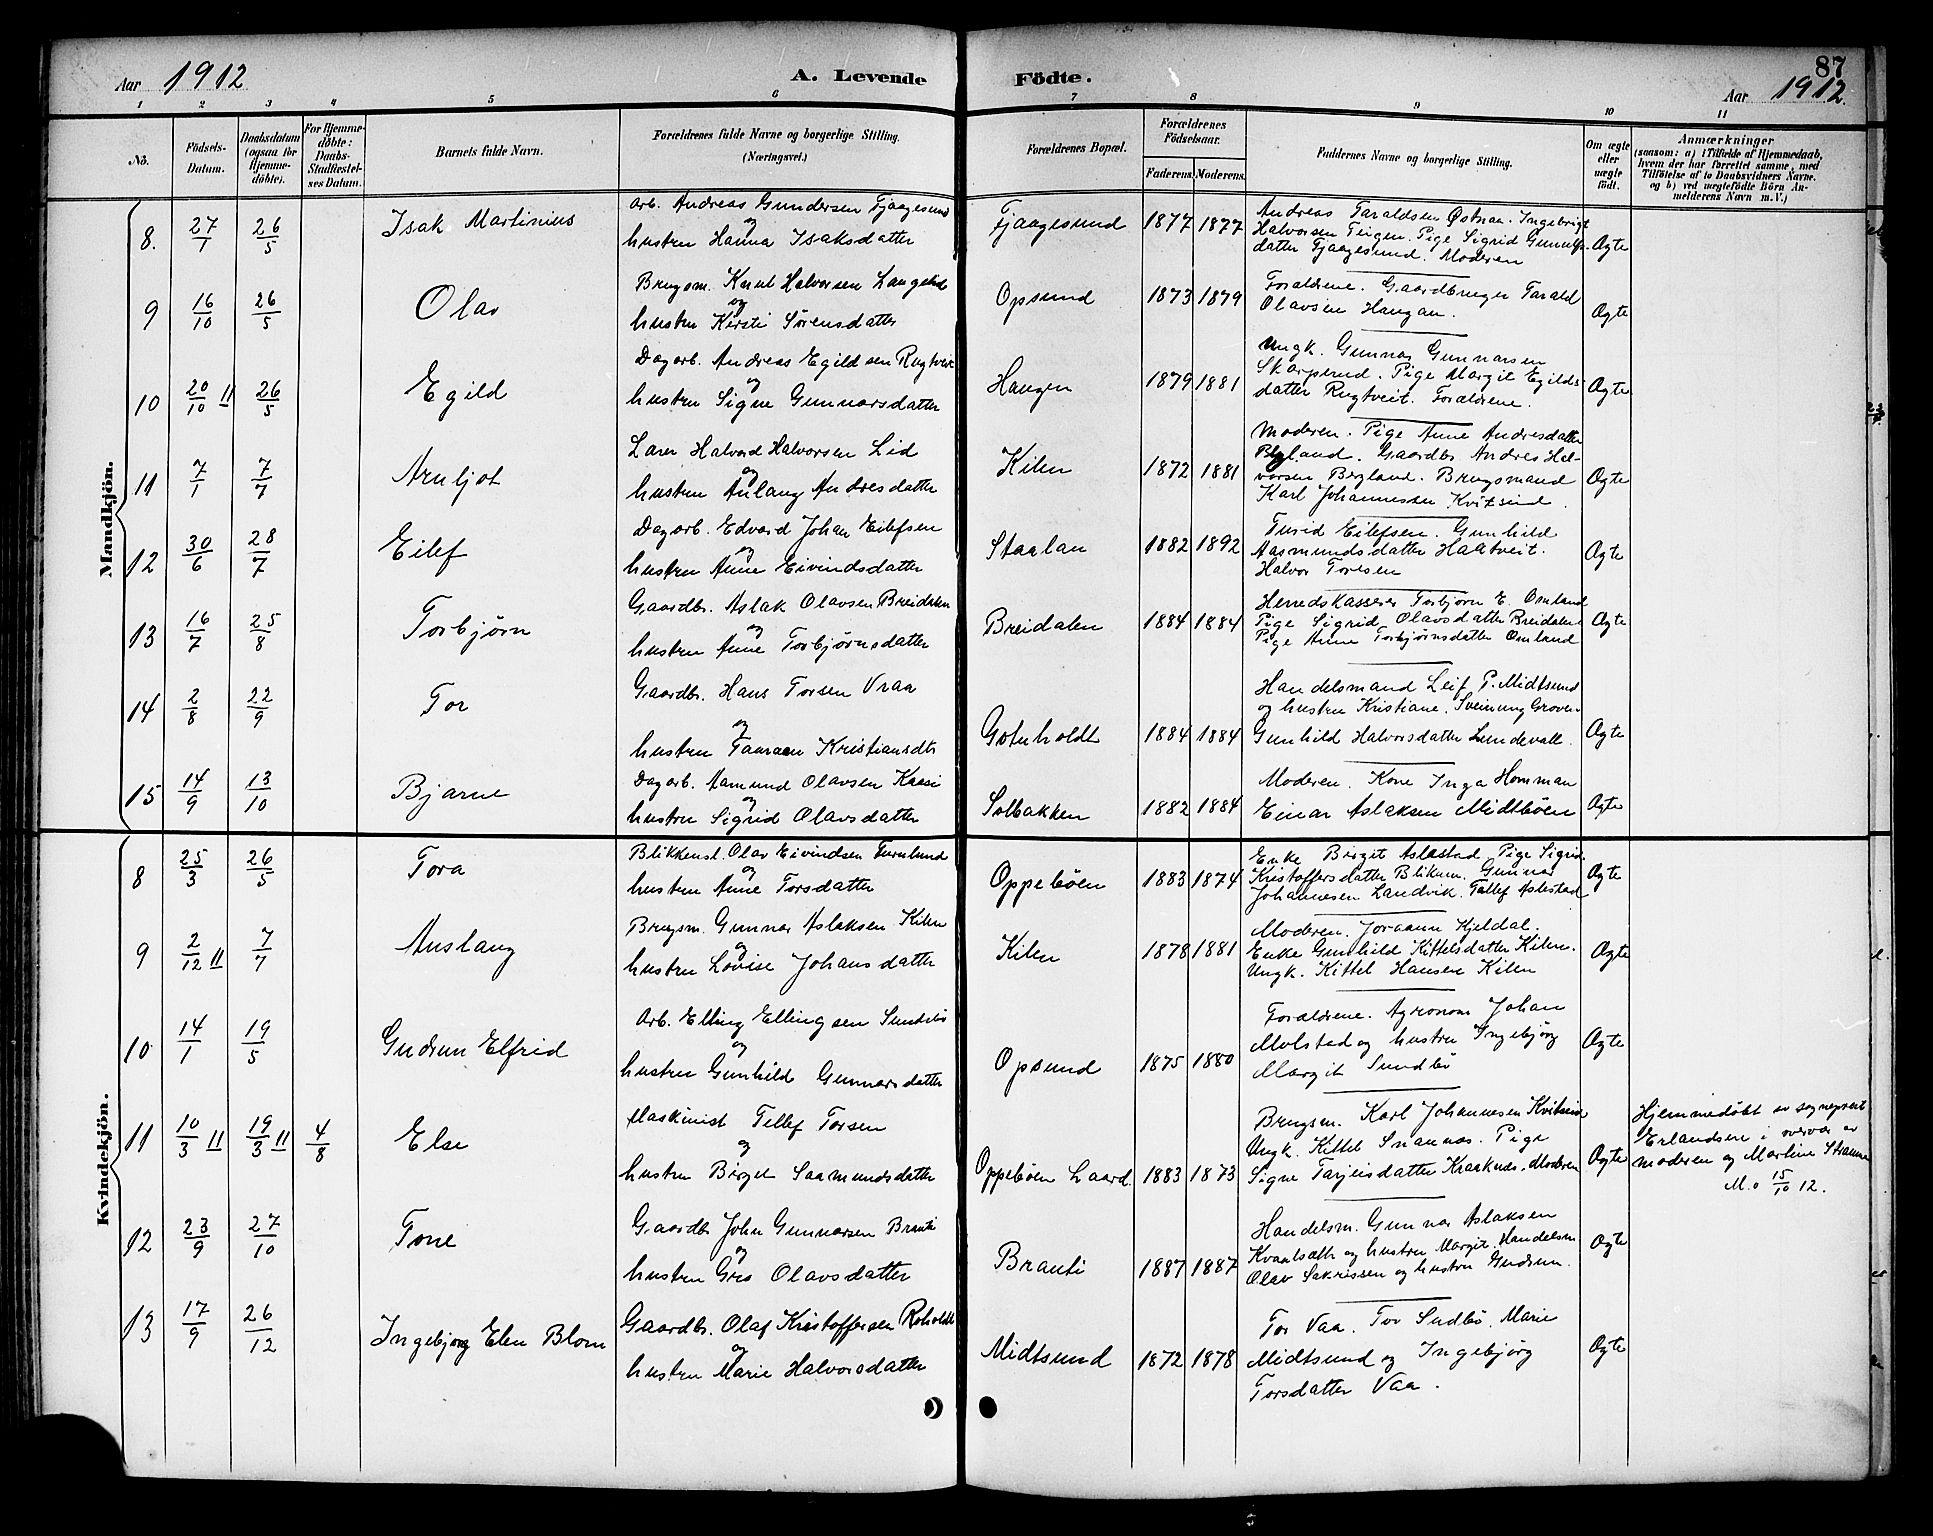 87
Aar 1912
A. Levende
Födte.
Aar 1912.
1 2 3 4 5 6 7 8 9 10 11
No.
Födsels-
Datum.
Daabsdatum
(ogsaa for
Hjemme-
döbte).
For Hjemme-
döbte:
Daabs-
Stadfæstel-
ses Datum.
Barnets fulde Navn.
Forældrenes fulde Navne og borgerlige Stilling.
(Næringsvei.)
Forældrenes Bopæl.
Forældrenes
Födselsaar.
Faderens.
Moderens.
Faddernes Navne og borgerlige Stilling.
Om ægte
eller
uægte
födt.
Anmærkninger
(saasom: a) i Tilfælde af Hjemmedaab,
hvem der har forrettet samme, med
Tilföielse af to Daabsvidners Navne.
og b) ved uægtefödte Börn An-
melderens Navn m.V.)
Mandkjön.
8. 27/1 26/5 Isak Martinius
Arb. Andreas Gundersen Fjaagesund
og
hustru Hanna Isaksdatter
Fjaagesund 1877 1877
Andreas Taraldsen Østnæ. Ingebrigt
Halvorsen Teigen. Pige Sigrid Gunnulfs-
datter Fjaagesund. Moderen
Ægte
9 16/10 26/5 Olav
Brugsm. Knut Halvorsen Langelid
og
hustru Kirsti Sørensdatter
Opsund 1873 1879
Forældrene. Gaardbruger Tarald
Olavsen Haugan.
Ægte
10 20/10 11 26/5 Egild
Dagarb. Andreas Egildsen Rugtveit
og
hustru Signe Gunnarsdatter
Haugen 1879 1881
Ungk. Gunnar Gunnarsen
Skarprud. Pige Margit Egilds-
datter Rugtveit. Forældrene.
Ægte
11 7/1 7/7 Arnljot
Lærer Halvord Halvorsen Lid
og
hustru Aslaug Andresdatter
Kilen 1872 1881
Moderen. Pige Anne Andresdatter
Bygland. Gaardbr. Andres Hal-
vorsen Bygland. Brugsmand
Karl Johannessen Kvitsund.
Ægte
12 30/6 28/7 Eilef
Dagarb. Edvard Johan Eilefsen
og
hustru Anne Eivindsdatter
Staalan 1882 1892
Turid Eilefsen. Gunhild
Aasmundsdatter Haatveit.
Halvor Toresen
Ægte
13 16/7 25/8 Torbjørn
Gaardbr. Aslak Olavsen Breidalen
og
hustru Anne Torbjørnsdatter
Breidalen 1884 1884
Herredskasserer Torbjørn E. Omland
Pige Sigrid Olavsdatter Breidalen
Pige Anne Torbjørnsdatter Omland
Ægte
14 2/8 22/9 Tor
Gaardbr. Hans Torsen Vraa
og
hustru Taaraan Kristiansdtr
Gotuholdt 1884 1884
Handelsmand Leif P. Midtsund
og hustru Kristiane. Sveinung Groven.
Gunhild Halvorsdatter Lundevall.
Ægte
15 14/9 13/10 Bjarne
Dagarb. Aamund Olavsen Kaasi
og
hustru Sigrid Olavsdatter
Solbakken 1882 1884
Moderen. Kone Inga Homman
Einar Aslaksen Midtbøen
Ægte
Kvindekjön.
8 25/3 26/5 Tora
Blikkensl. Olav Eivindsen Turnlund
og
hustru Anne Torsdatter
Oppebøen 1883 1874
Enke Birgit Aslestad. Pige Sigrid
Kristoffersdatter Blikum. Gunnar
Johannesen Landvik. Tellef Aslestad
Ægte
9 2/12 11 7/7 Auslaug
Brugsm. Gunnar Aslaksen Kilen
og
hustru Lovise Johansdatter
Kilen 1878 1881
Moderen. Joraann Kjeldal.
Enke Gunhild Kittelsdatter Kilen.
Ungk. Kittel Hansen Kilen
Ægte
10 14/1 19/5 Gudrun Elfrid
Arb. Elling Ellingsen Sundbø
og
hustru Gunhild Gunnarsdatter
Opsund 1875 1880
Forældrene. Agronom Johan
Molstad og hustru Ingebjørg
Margit Sundbø
Ægte
11 10/3 11 19/3 11 4/8 Else
Maskinist Tellef Torsen
og
hustru Birgit Saamundsdatter
Oppebøen Laard. 1883 1873
Brugsm. Karl Johannesen Kvitsund
Ungk. Kittel Snaunas. Pige
Signe Tarjeisdatter Kraaknes. Moderen
Ægte
Hjemmedøbt av sogneprest
Erlandsen i overvær av
moderen og Martine Straume
M. o 15/10 12.
12 23/9 27/10 Tone
Gaardbr John Gunnarsen Brauti
og
hustru Gro Olavsdatter
Brauti 1887 1887
Handelsm. Gunnar Aslaksen
Kvaalsæth og hustru Margit. Handelsm
Olav Sakrissen og hustru Gudrun.
Ægte
13 17/9 26/12 Ingebjørg Elen Blom
Gaardbr. Olaf Kristoffersen Roholdt
og
hustru Marie Halvorsdatter
Midtsund 1872 1878
Tor Vaa. Tov Sudbø. Marie
Midtsund og Ingebjörg
Torsdatter Vaa.
Ægte